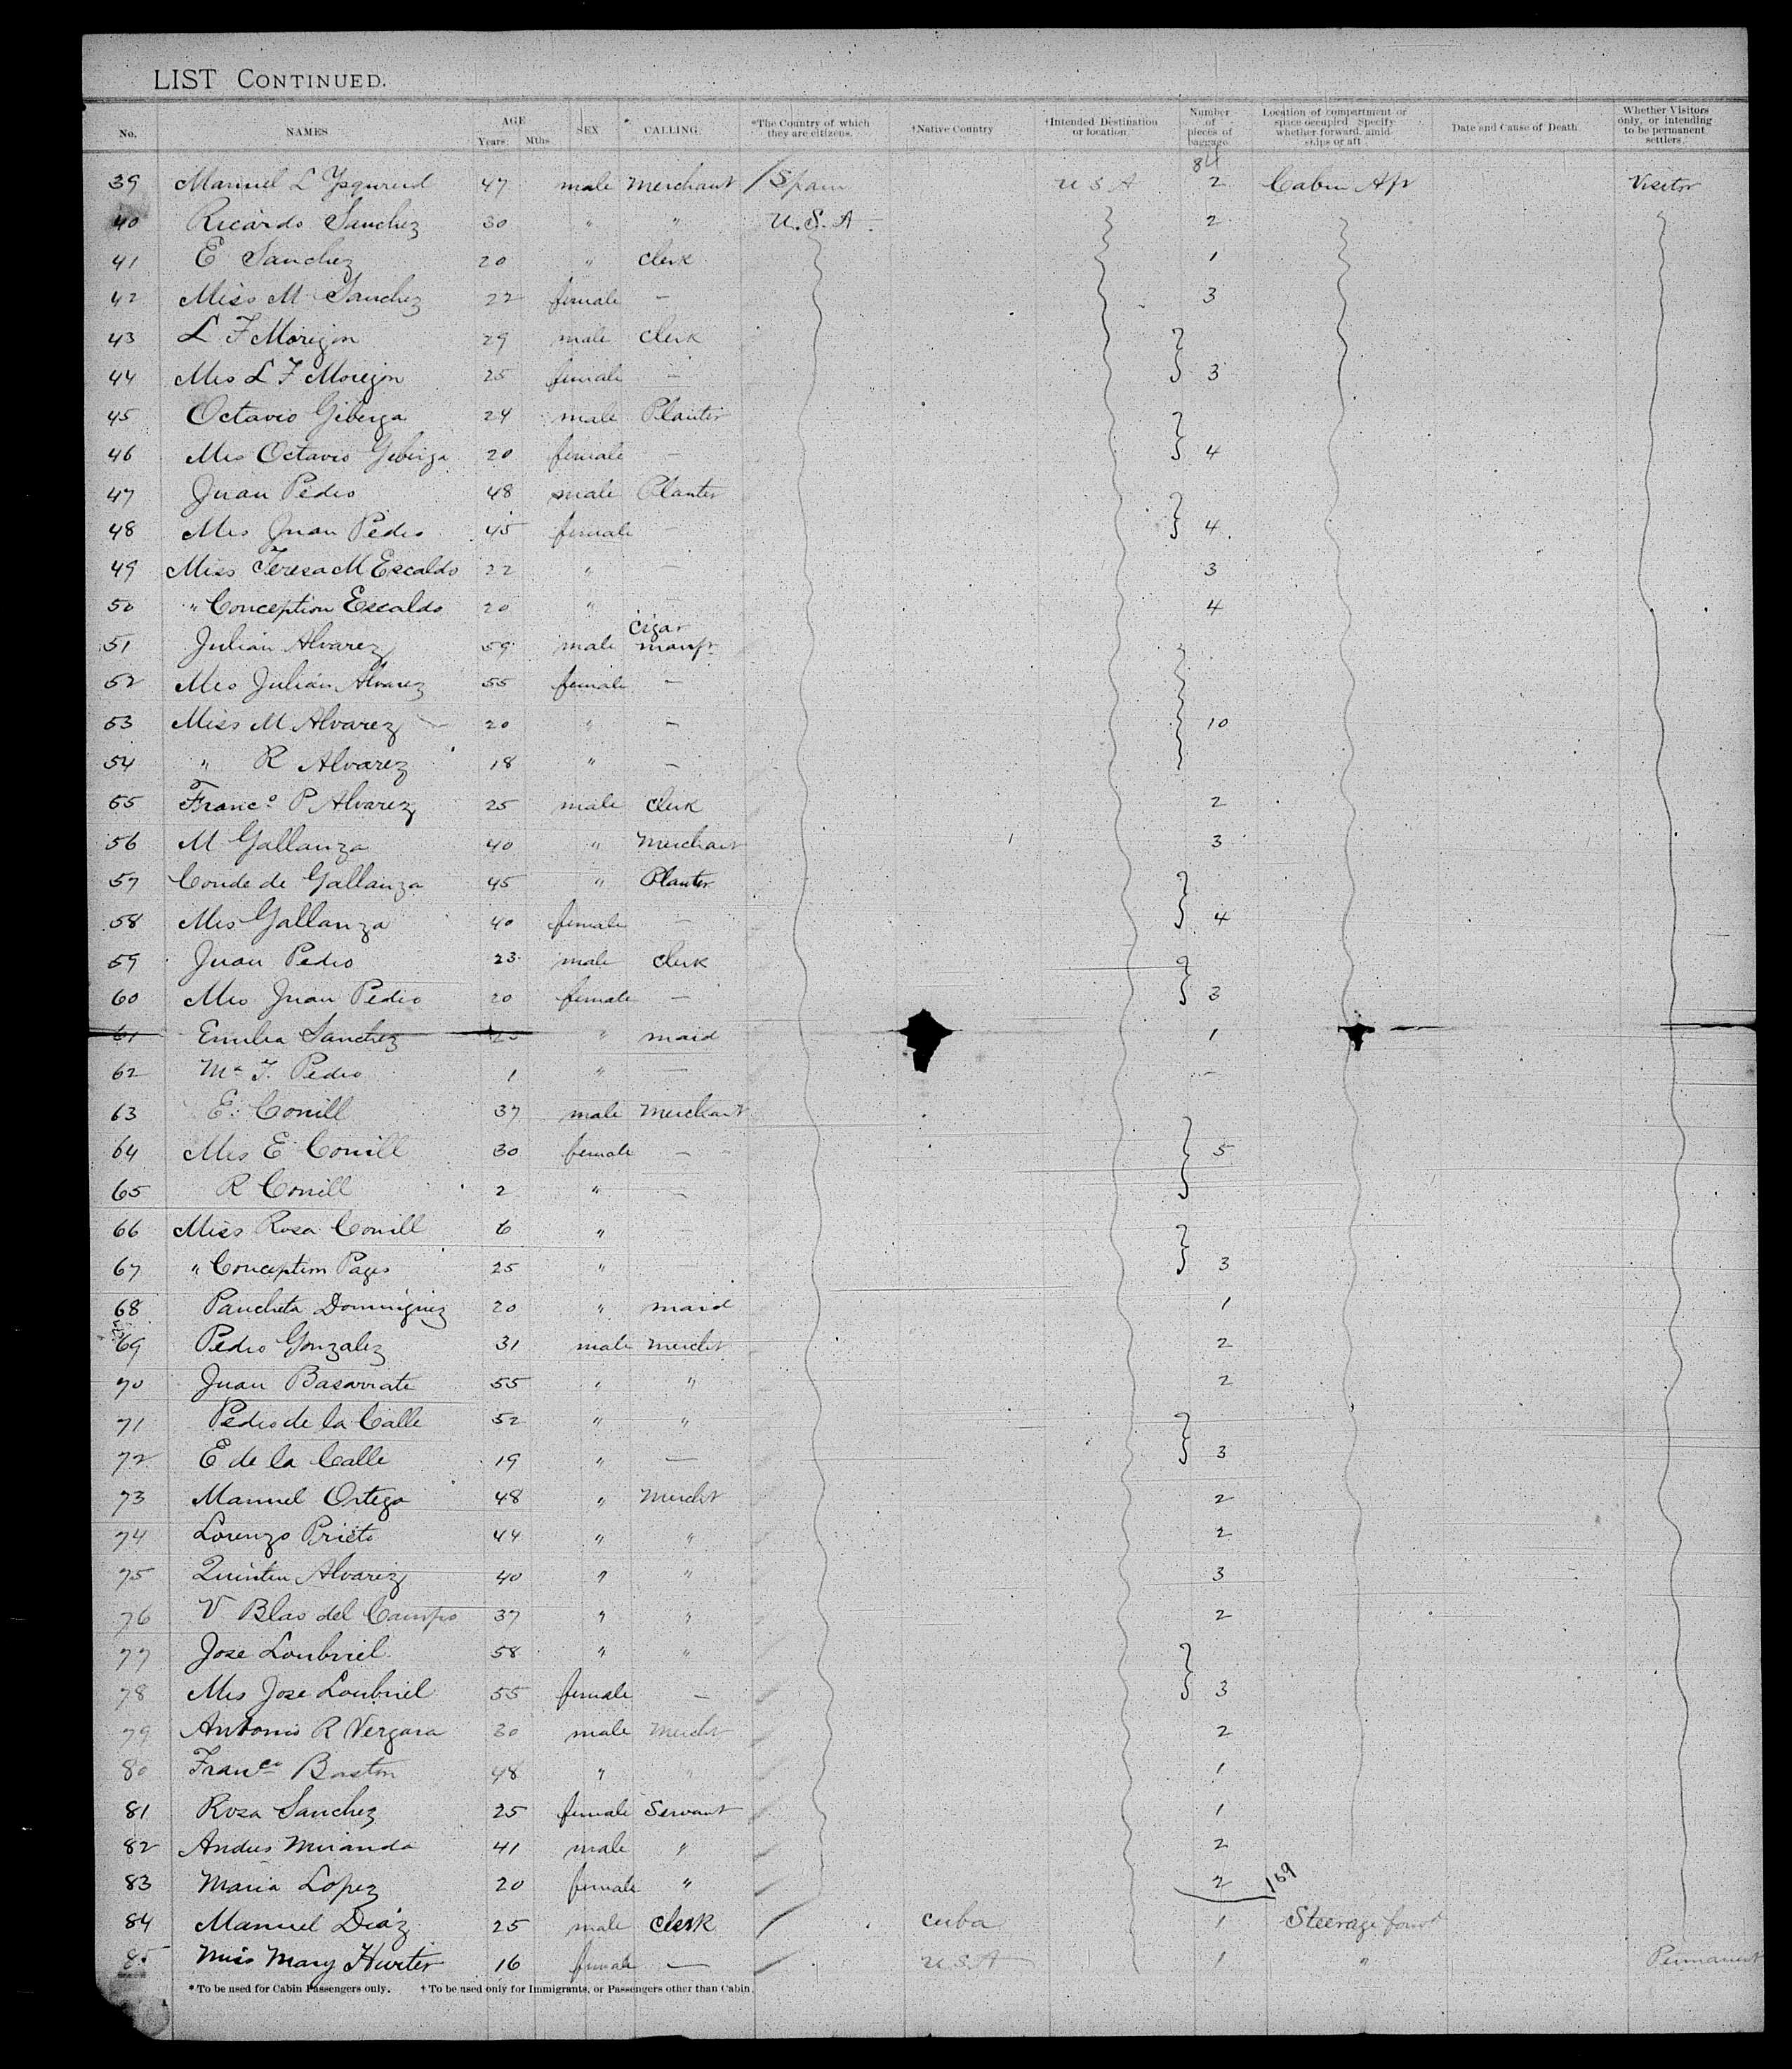 LIST CONTINUED.
No. NAMES AGE Years Mths SEX CALLING. *The Country of which they are citizens. †Native Country †Intended Destination or location Number of pieces of baggage. Location of compartment or space occupied. Specify whether forward, amidships or aft Date and Cause of Death Whether Visitors only, or intending to be permanent settlers
84
39 Manuel L 47 male Merchant / Spain U S A 2 Cabin Aft Visitor
40 Ricardo Sanchez 30 " " U.S.A. 2
41 E Sanchez 20 " Clerk 1
42 Miss M Sanchez 22 female — 3
43 L F Morejon 29 male Clerk
44 Mrs L F Morejon 25 female — 3
45 Octavio Giberga 24 male Planter
46 Mrs Octavio Giberga 20 female — 4
47 Juan Pedro 48 male Planter
48 Mrs Juan Pedro 45 female — 4
49 Miss Teresa M Escaldo 22 " — 3
50 " Conception Escaldo 20 " — 4
51 Julián Alvarez 59 male Cigar manfr
52 Mrs Julián Alvarez 55 female —
53 Miss M Alvarez 20 " — 10
54 " R Alvarez 18 " —
55 Franco P Alvarez 25 male Clerk 2
56 M Gallanza 40 " Merchant 3
57 Conde de Gallanza 45 " Planter
58 Mrs Gallanza 40 female — 4
59 Juan Pedro 23 male Clerk
60 Mrs Juan Pedro 20 female — 3
61 Emilia Sanchez 25 " maid 1
62 Ma F. Pedro 1 " — —
63 E. Conill 37 male Merchant
64 Mrs E Conill 30 female — 5
65 R Conill 2 " —
66 Miss Rosa Conill 6 "
67 " Conception Pages 25 " 3
68 Pancheta Dominguez 20 " maid 1
69 Pedro Gonzalez 31 male Mercht 2
70 Juan Basarrate 55 " " 2
71 Pedro de la Calle 52 " "
72 E de la Calle 19 " — 3
73 Manuel Ortega 48 " Mercht 2
74 Lorenzo Prieto 44 " " 2
75 Quintin Alvarez 40 " " 3
76 V Blas del Campo 37 " " 2
77 Jose Loubriel 58 " "
78 Mrs Jose Loubriel 55 female — 3
79 Antonio R Vergara 30 male Mercht 2
80 Franco Baston 48 " " 1
81 Rosa Sanchez 25 female Servant 1
82 Andres Miranda 41 male " 2
83 Maria Lopez 20 female " 2 169
84 Manuel Diaz 25 male Clerk / Cuba 1 Steerage forwd
85 Miss Mary Hunter 16 female — / U.S.A 1 " Permanent
* To be used for Cabin Passengers only. † To be used only for Immigrants, or Passengers other than Cabin.